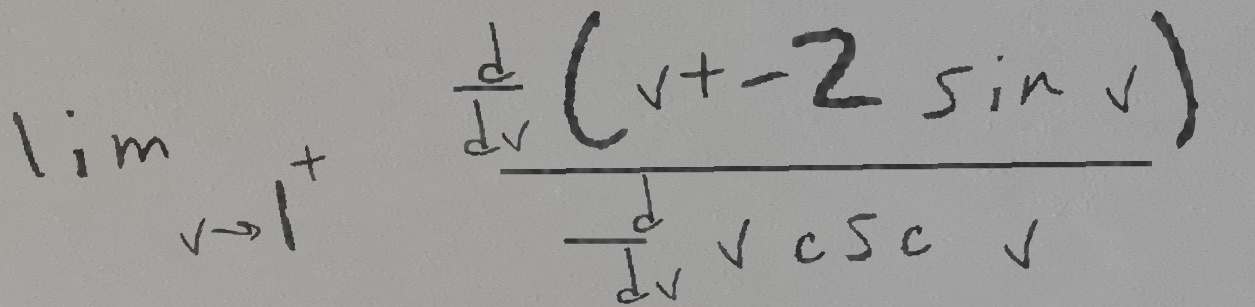 \lim_{v \to 1^+} \frac{\frac{d}{dv}(v + -2 \sin v)}{\frac{d}{dv} v \csc v}